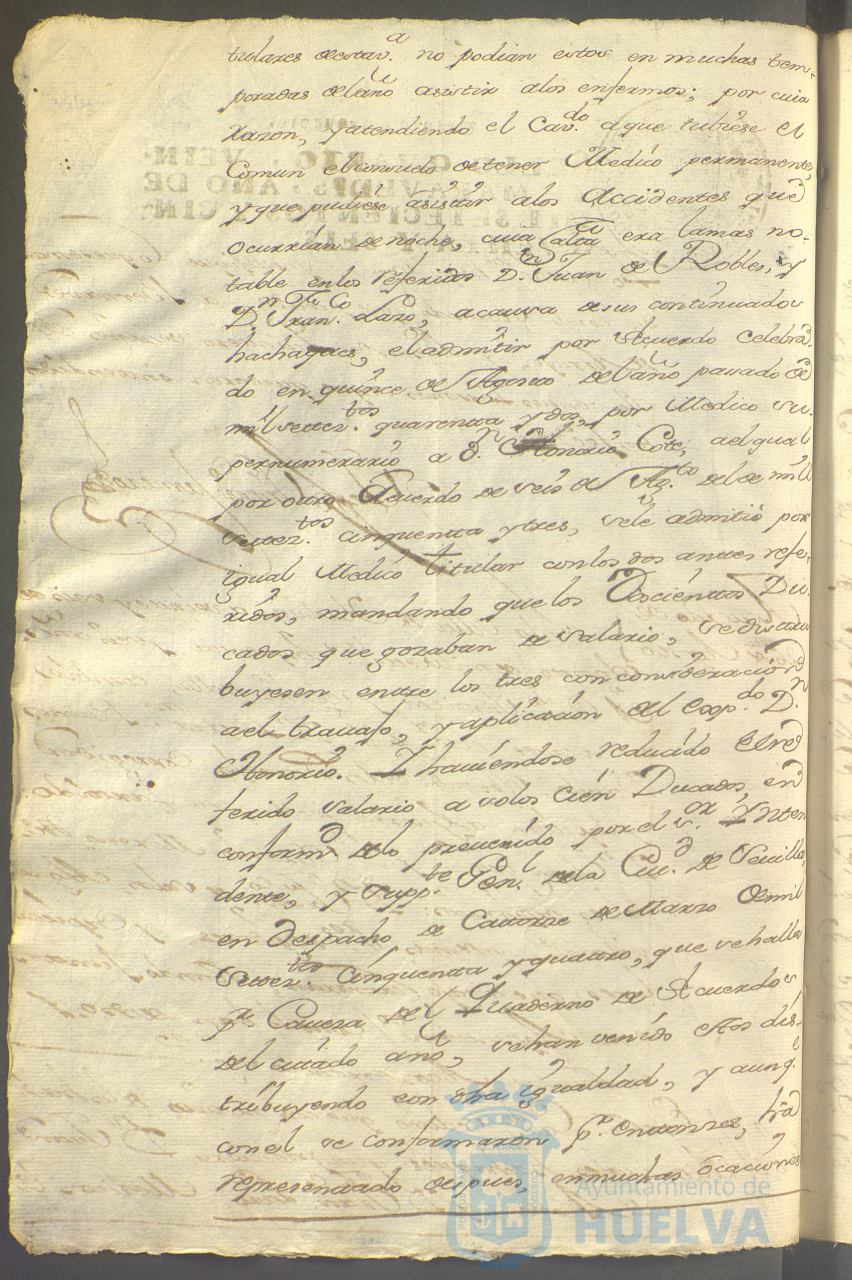 tulares de esta v.ª no podian estos en muchas tem-
poradas del año asistir alos enfermos; por cuia
razon, y atendiendo el Cav.do a que tubiese el
Comun el consuelo de tener Medico permanente,
y que pudiese asistir alos Accidentes que
ocurrian de noche, cuia falta era la mas no-
table en los referidos D.n Juan de Robles, y
D.n Fran.co Lazo, a causa de sus continuados
hachaques, el admitir por Acuerdo celebra-
do en quince de Agosto del año pasado de
mil setez.tos quarenta y dos, por Medico su-
pernumerario a D.n Honorio Cote; a el qual
por otro Acuerdo de seis de Ag.to del de mil
setez.tos cinquenta y tres, se le admitió por
igual Medico titular con los dos antes refe-
ridos, mandando que los Doscientos Du-
cados que gozaban de salario, se distri
buyesen entre los tres con consideracion
a el travajo, y aplicacion del exsp.do D.n
Honorio. Y haciendose reducido el re
ferido salario a solos cien Ducados, en
conform.d de lo prevenido por el s.or Ynten
dente, y Supp.te Gen.l de la Ciu.d de Sevilla
en despacho de Catorze de Marzo de mil
setez.tos Cinquenta y quatro, que se halla
p.r Caveza del Quaderno de Acuerdos
del citado año, se han venido estos dis-
tribuyendo con dha igualdad, y aunq.e
con el se conformaron p.r entonzes, ha
representado despues, en muchas ocaciones
Ayuntamiento de
HUELVA